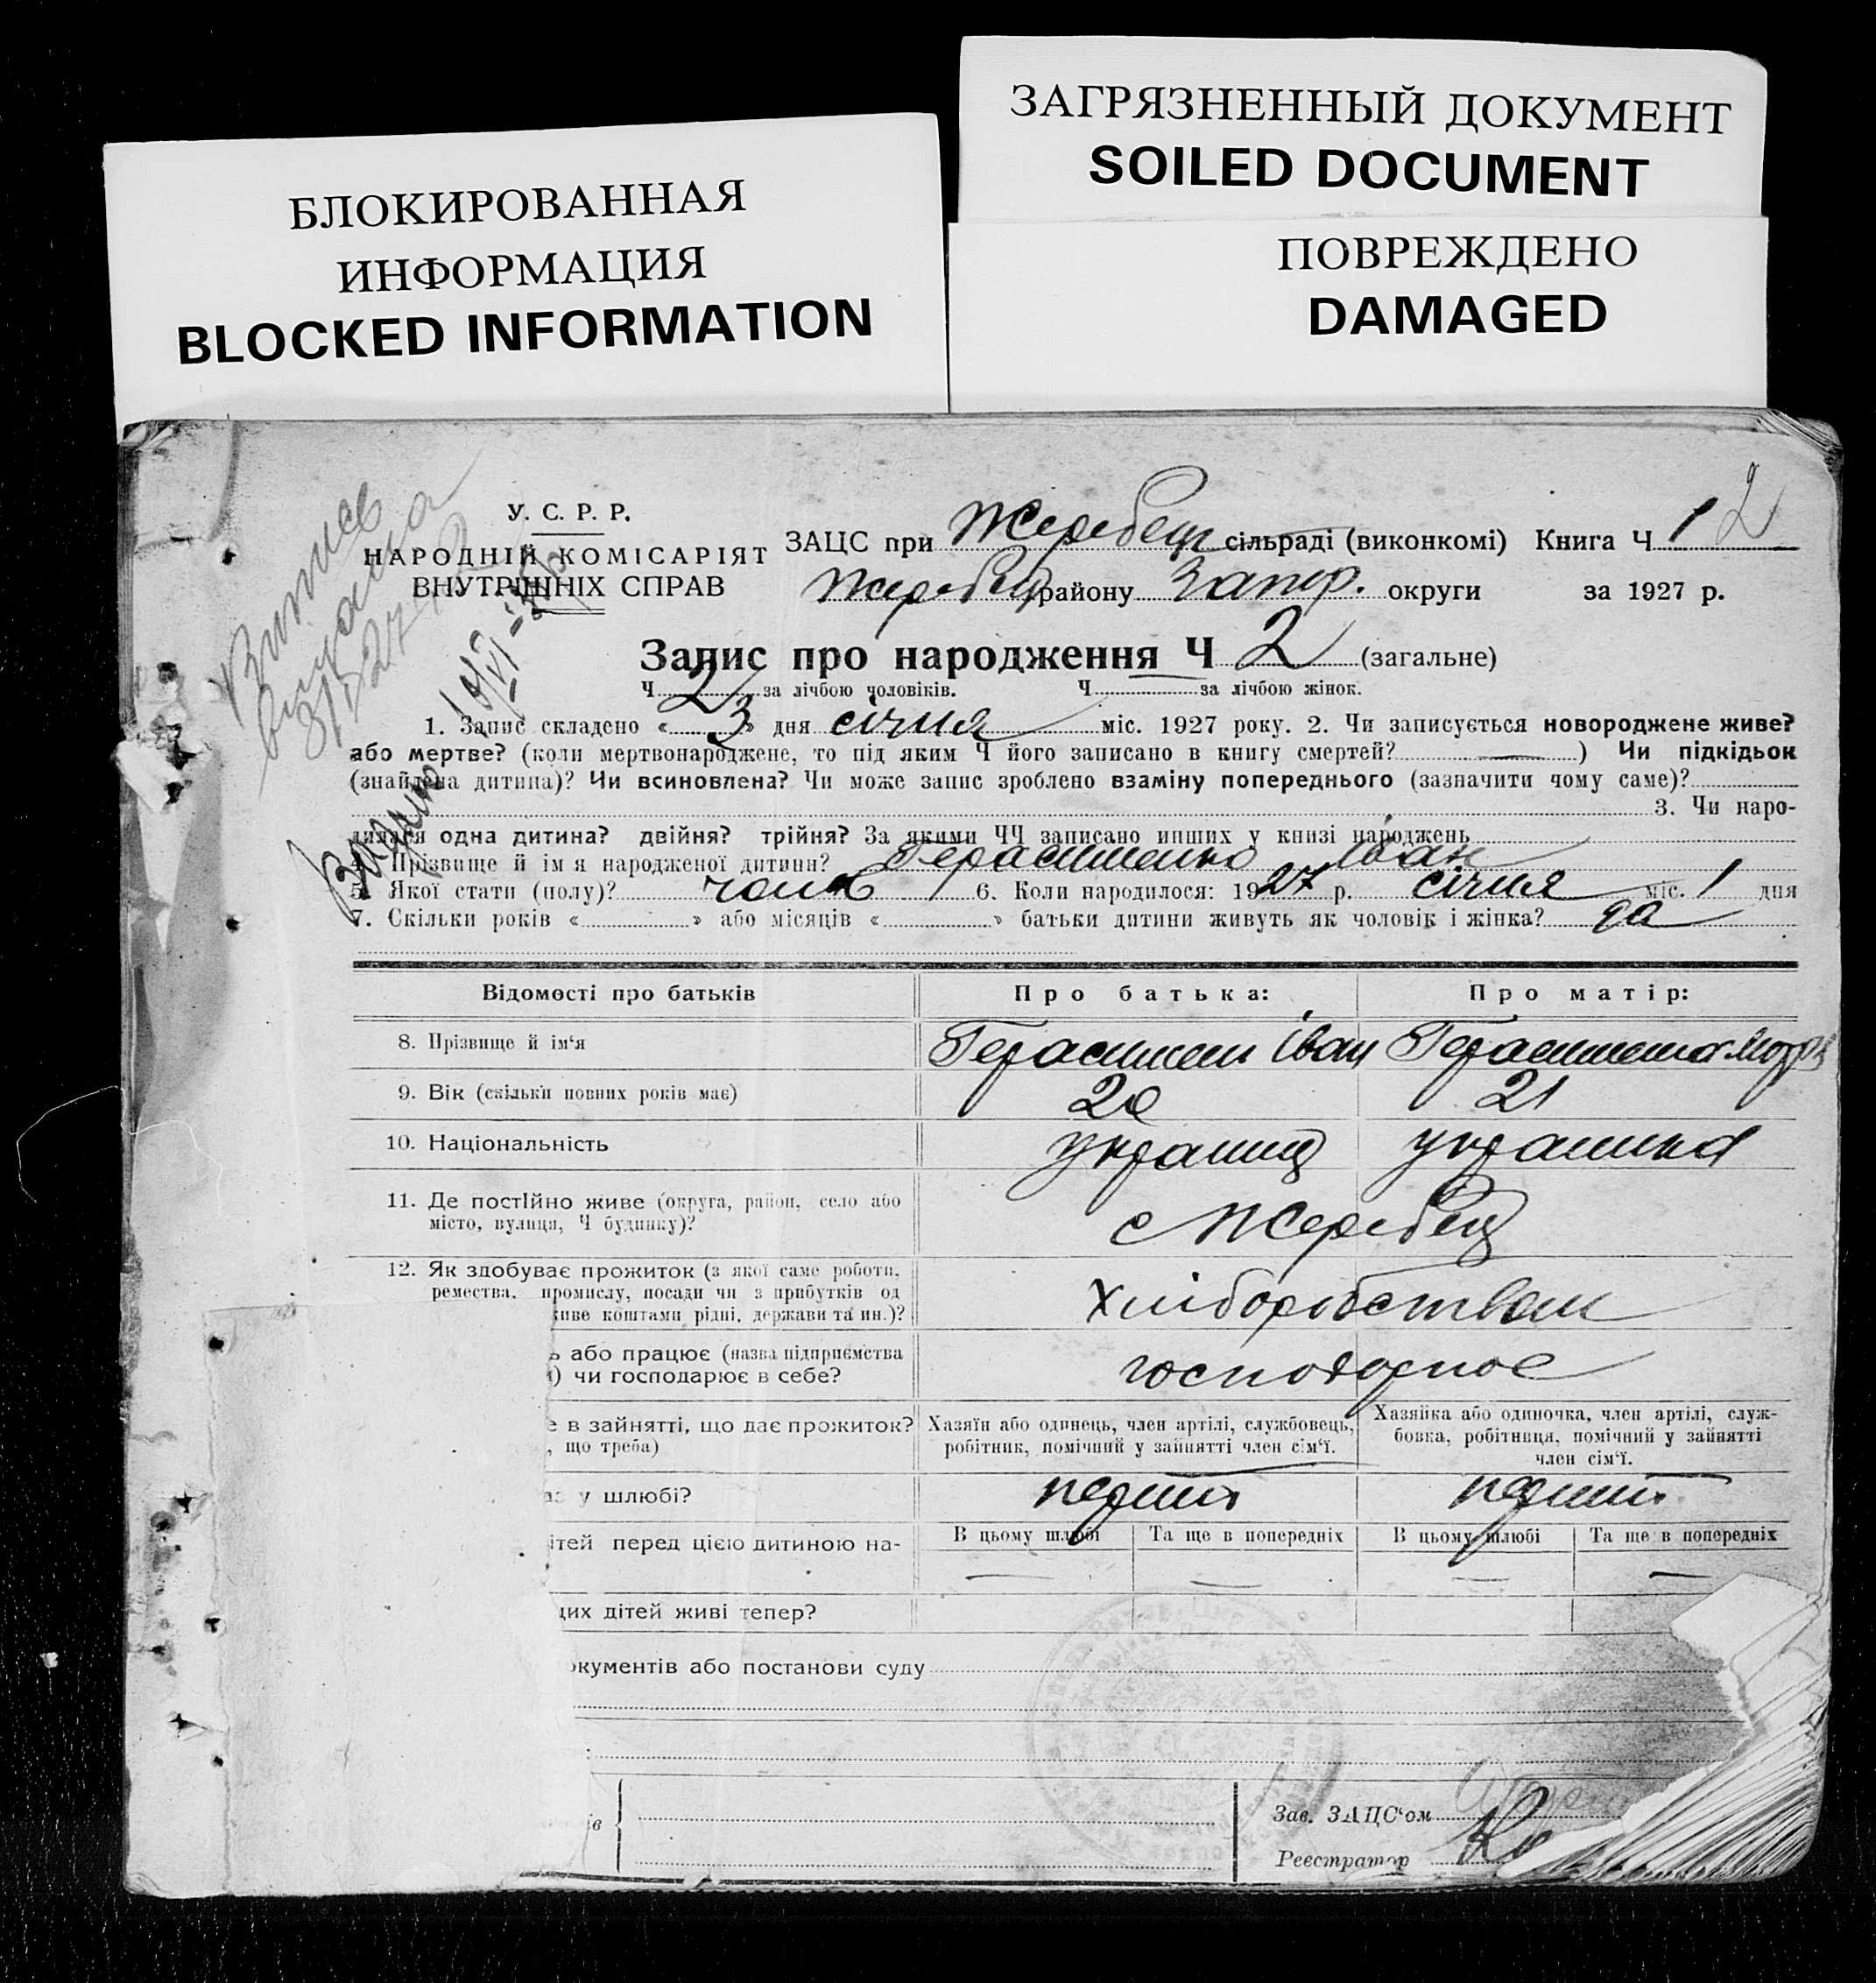 ЗАГРЯЗНЕННЫЙ ДОКУМЕНТ
SOILED DOCUMENT
БЛОКИРОВАННАЯ
ИНФОРМАЦИЯ
BLOCKED INFORMATION
ПОВРЕЖДЕНО
DAMAGED
У. С. Р. Р.
НАРОДНІЙ КОМІСАРІЯТ
ВНУТРІШНІХ СПРАВ
ЗАЦС при Жеребец сільраді (виконкомі) Книга Ч 1 2
Жеребец району Запор. округи за 1927 р.
Запис про народження Ч 2 (загальне)
Ч 2 за лічбою чоловіків. Ч за лічбою жінок.
1. Запис складено « 3 » дня січня міс. 1927 року. 2. Чи записується новороджене живе?
або мертве? (коли мертвонароджене, то під яким Ч його записано в книгу смертей? — ) Чи підкідьок
(знайдена дитина)? Чи всиновлена? Чи може запис зроблено взаміну попереднього (зазначити чому саме)?
3. Чи наро-
дилася одна дитина? двійня? трійня? За якими ЧЧ записано инших у книзі народжень
4. Прізвище й ім я народженої дитини? Герасименко Іван
5. Якої стати (полу)? чолов 6. Коли народилося: 1927 р. січня міс. 1 дня
7. Скільки років « » або місяців « » батьки дитини живуть як чоловік і жінка? да
Відомості про батьків Про батька: Про матір:
8. Прізвище й ім'я Герасимен Іван Герасименко Мотря
9. Вік (скільки повних років має) 20 21
10. Національність українц українка
11. Де постійно живе (округа, район, село або
місто, вулиця, Ч будинку)?
с Жеребец
12. Як здобуває прожиток (з якої саме роботи,
ремества, промислу, посади чи з прибутків од
живе коштами рідні, держави та ин.)?
Хліборобством
ь або працює (назва підприємства
) чи господарює в себе?
господорное
е в зайнятті, що дає прожиток?
, що треба)
Хазяїн або одинець, член артілі, службовець,
робітник, помічний у зайнятті член сім'ї.
Хазяйка або одиночка, член артілі, служ-
бовка, робітниця, помічний у зайнятті
член сім'ї.
аз у шлюбі? первий первий
ітей перед цією дитиною на-
В цьому шлюбі Та ще в попередніх В цьому шлюбі Та ще в попередніх
— — — —
цих дітей живі тепер?
окументів або постанови суду
ів
Зав. ЗАЦС'ом
Реєстратор
Витись
видана
Видано